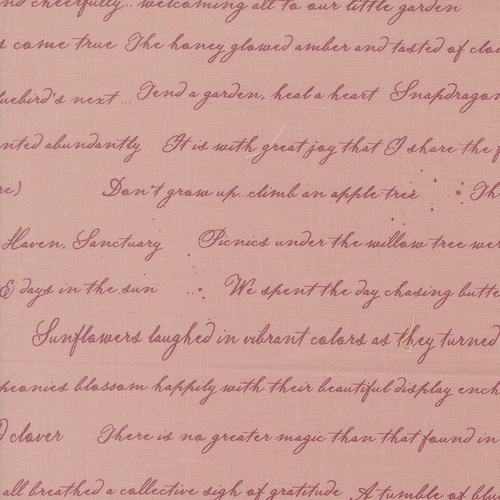 cheerfully... welcoming all to our little garden
come true The honey glowed amber and tasted of
next ... Tend a garden, heal a heart
abundantly It is with great joy that I share the
Don't grow up..climb an apple tree
Haven, Sanctuary Picnics under the willow tree
& days in the sun We spent the day chasing
Sunflowers laughed in vibrant colors as they turned
peonies blossom happily with their beautiful display
clover There is no greater magic than that found in
all breathed a collective sigh of gratitude A tumble of